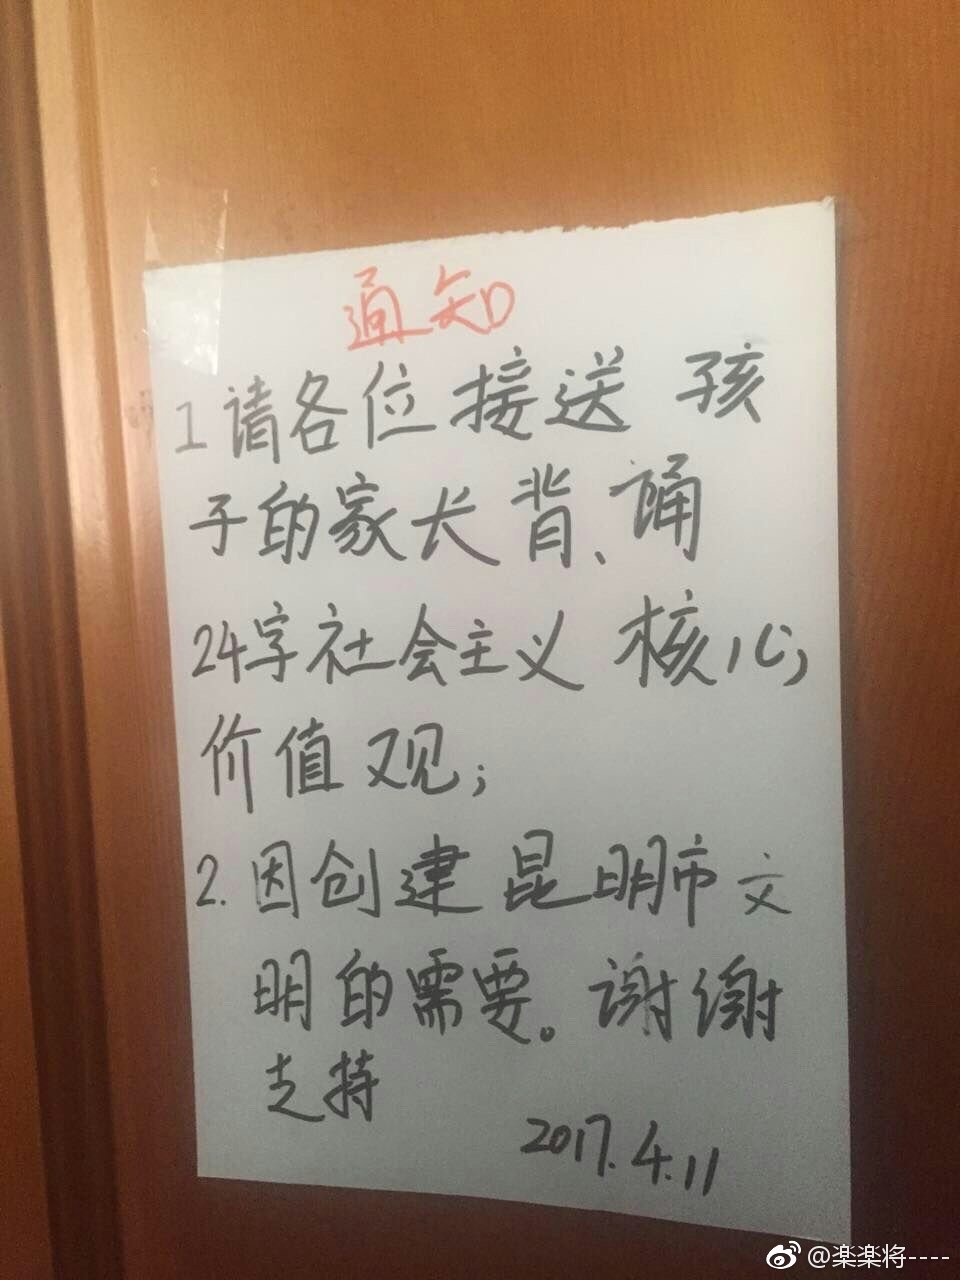 通知
1请各位接送孩
子的家长背、诵
24字社会主义核心
价值观；
2.因创建昆明市文
明的需要。谢谢
支持
2017.4.11
@楽楽将----